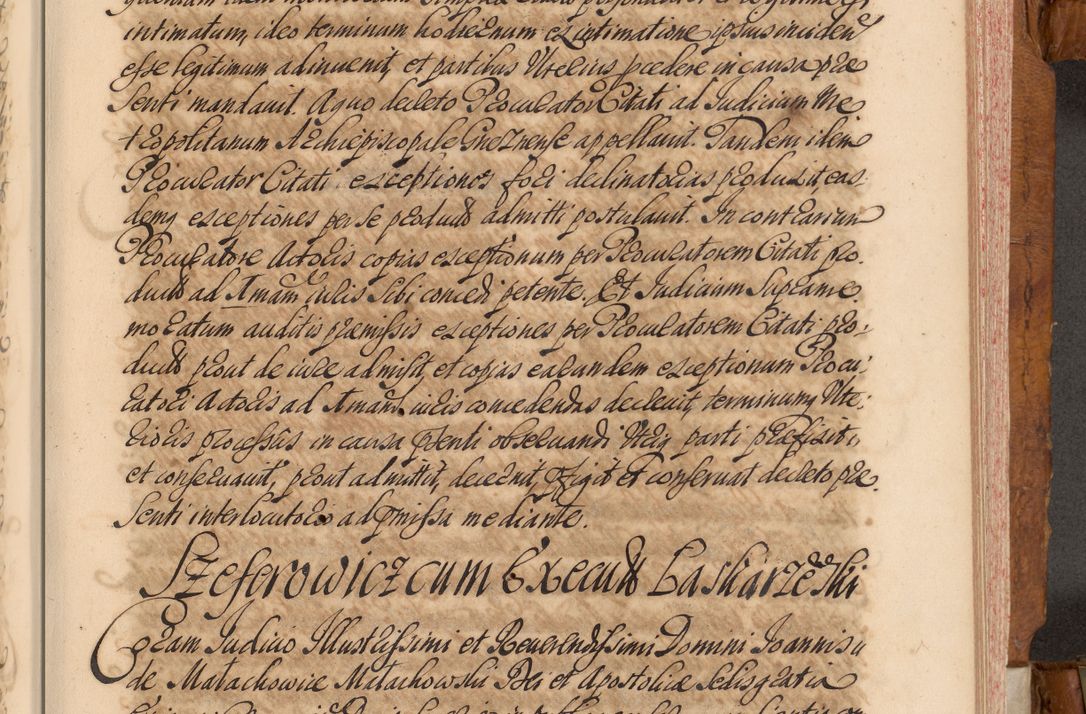 intimatum, ideo terminum hodiernum ex intimatione ipsius incidenter
esse legitimum adinvenit, et partibus Ulterius procedere in causa præ
senti mandavit. A quo decreto Procurator Citati ad Judicium Me
tropolitanum Archiepiscopale Gneznense appellavit. Tandem idem
Procurator Citati exceptiones fori declinatorias produxit, eas
demq exceptiones per se product admitti postulavit. In contrarium
Procuratore Actoris copias exceptionum per Procuratorem Citati pro
duct ad Amam iuris sibi concedi petente. Et Judicium Supreme
moratum auditis præmissis exceptiones per Procuratorem Citati pro
duct prout de iure admisit et copias earundem exceptionum Procu
ratori Actoris ad Amam iuris concedendas decrevit, terminumq Ulte
rioris processus in causa pnti observandi Utriq parti præfixit
et conservavit, prout admittit, decernit, pfigit et conservat decreto præ
senti interlocutorio ad pmissa mediante.
Szeferowicz cum Execut Laskarzewski
Coram Judicio Illustrissimi et Reverendissimi Domini Joannis a
de Małachowice Małachowski Dei et Apostolicæ Sedis gratia